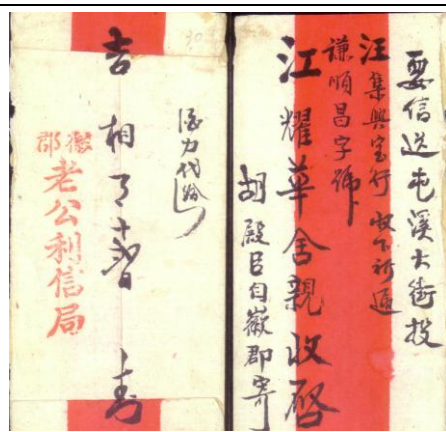 要信送屯溪大街投
汪集興宝行 收下祈遞
謙順昌字號
江耀華舍親收啓
胡殿臣自徽郡寄
30
酒力代給
吉 相月十
徽郡
老公利信局